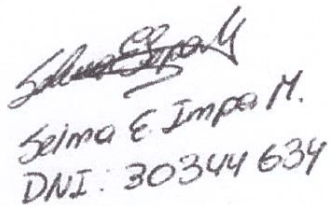 Selma E. Impa M.
DNI: 30344634